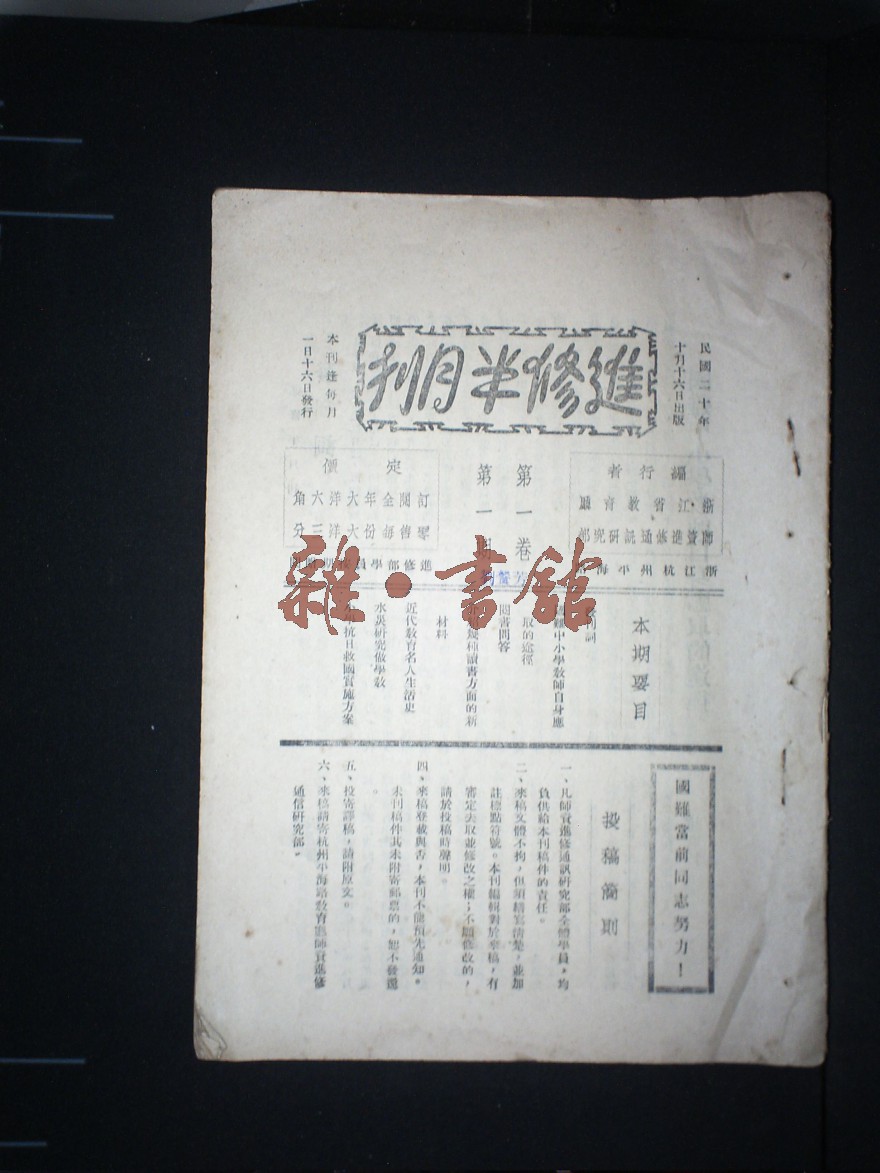 民國二十年
十月十六日出版
進修半月刊
本刊逢每月
一日十六日發行
編行者
浙江省教育廳
師資進修通訊研究部
浙江杭州平海路
第一卷
第一期
定價
訂閱全年大洋六角
零售每份大洋三分
進修部學員
雜·書館
本期要目
發刊詞
中小學教師自身應
取的途徑
閱書問答
幾種讀書方面的新
材料
近代教育名人生活史
水災研究做學教
抗日救國實施方案
國難當前同志努力！
投稿簡則
一、凡師資進修通訊研究部全體學員，均
負供給本刊稿件的責任。
二、來稿文體不拘，但須繕寫清楚，並加
註標點符號。本刊編輯對於來稿，有
審定去取並修改之權；不願修改的，
請於投稿時聲明。
四、來稿登載與否，本刊不能預先通知。
未刊稿件其未附寄郵票的，恕不發還
。
五、投寄譯稿，請附原文。
六、來稿請寄杭州平海路教育廳師資進修
通信研究部。